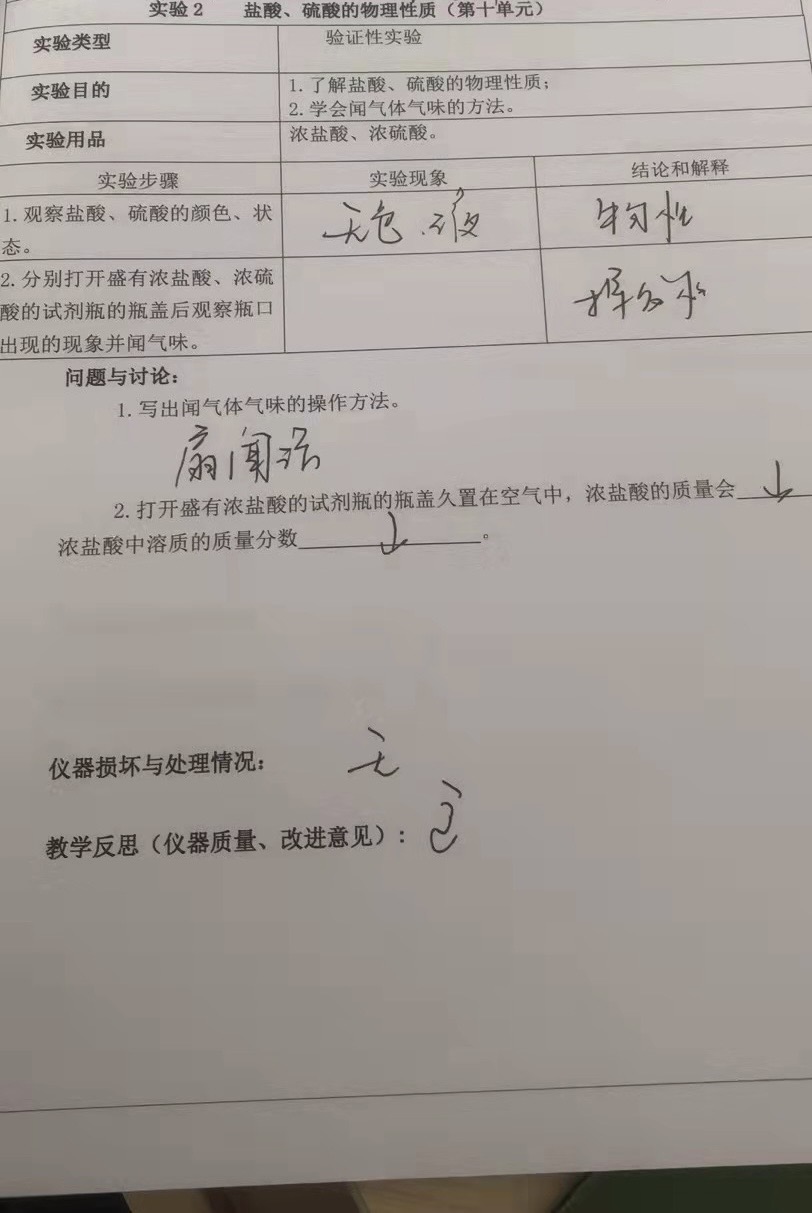 实验2 盐酸、硫酸的物理性质（第十单元）
实验类型 验证性实验
实验目的 1.了解盐酸、硫酸的物理性质；
2.学会闻气体气味的方法。
实验用品 浓盐酸、浓硫酸。
实验步骤 实验现象 结论和解释
1.观察盐酸、硫酸的颜色、状态。 无色.液 物性
2.分别打开盛有浓盐酸、浓硫
酸的试剂瓶的瓶盖后观察瓶口
出现的现象并闻气味。 挥发性
问题与讨论：
1.写出闻气体气味的操作方法。
扇闻法
2.打开盛有浓盐酸的试剂瓶的瓶盖久置在空气中，浓盐酸的质量会↓
浓盐酸中溶质的质量分数↓。
仪器损坏与处理情况： 无
教学反思（仪器质量、改进意见）：